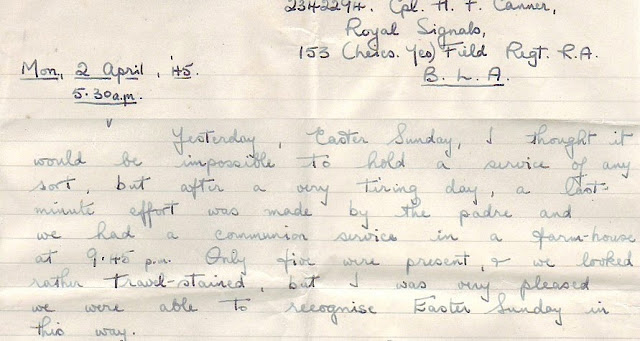 2342294. Cpl. H. F. Canner,
Royal Signals,
153 (Leics. Yeo) Field Regt. R.A.
B. L. A.
Mon, 2 April, '45.
5.30 a.m.
Yesterday, Easter Sunday, I thought it
would be impossible to hold a service of any
sort, but after a very tiring day, a last-
minute effort was made by the padre and
we had a communion service in a farm-house
at 9.45 p.m. Only five were present, & we looked
rather travel-stained, but I was very pleased
we were able to recognise Easter Sunday in
this way.